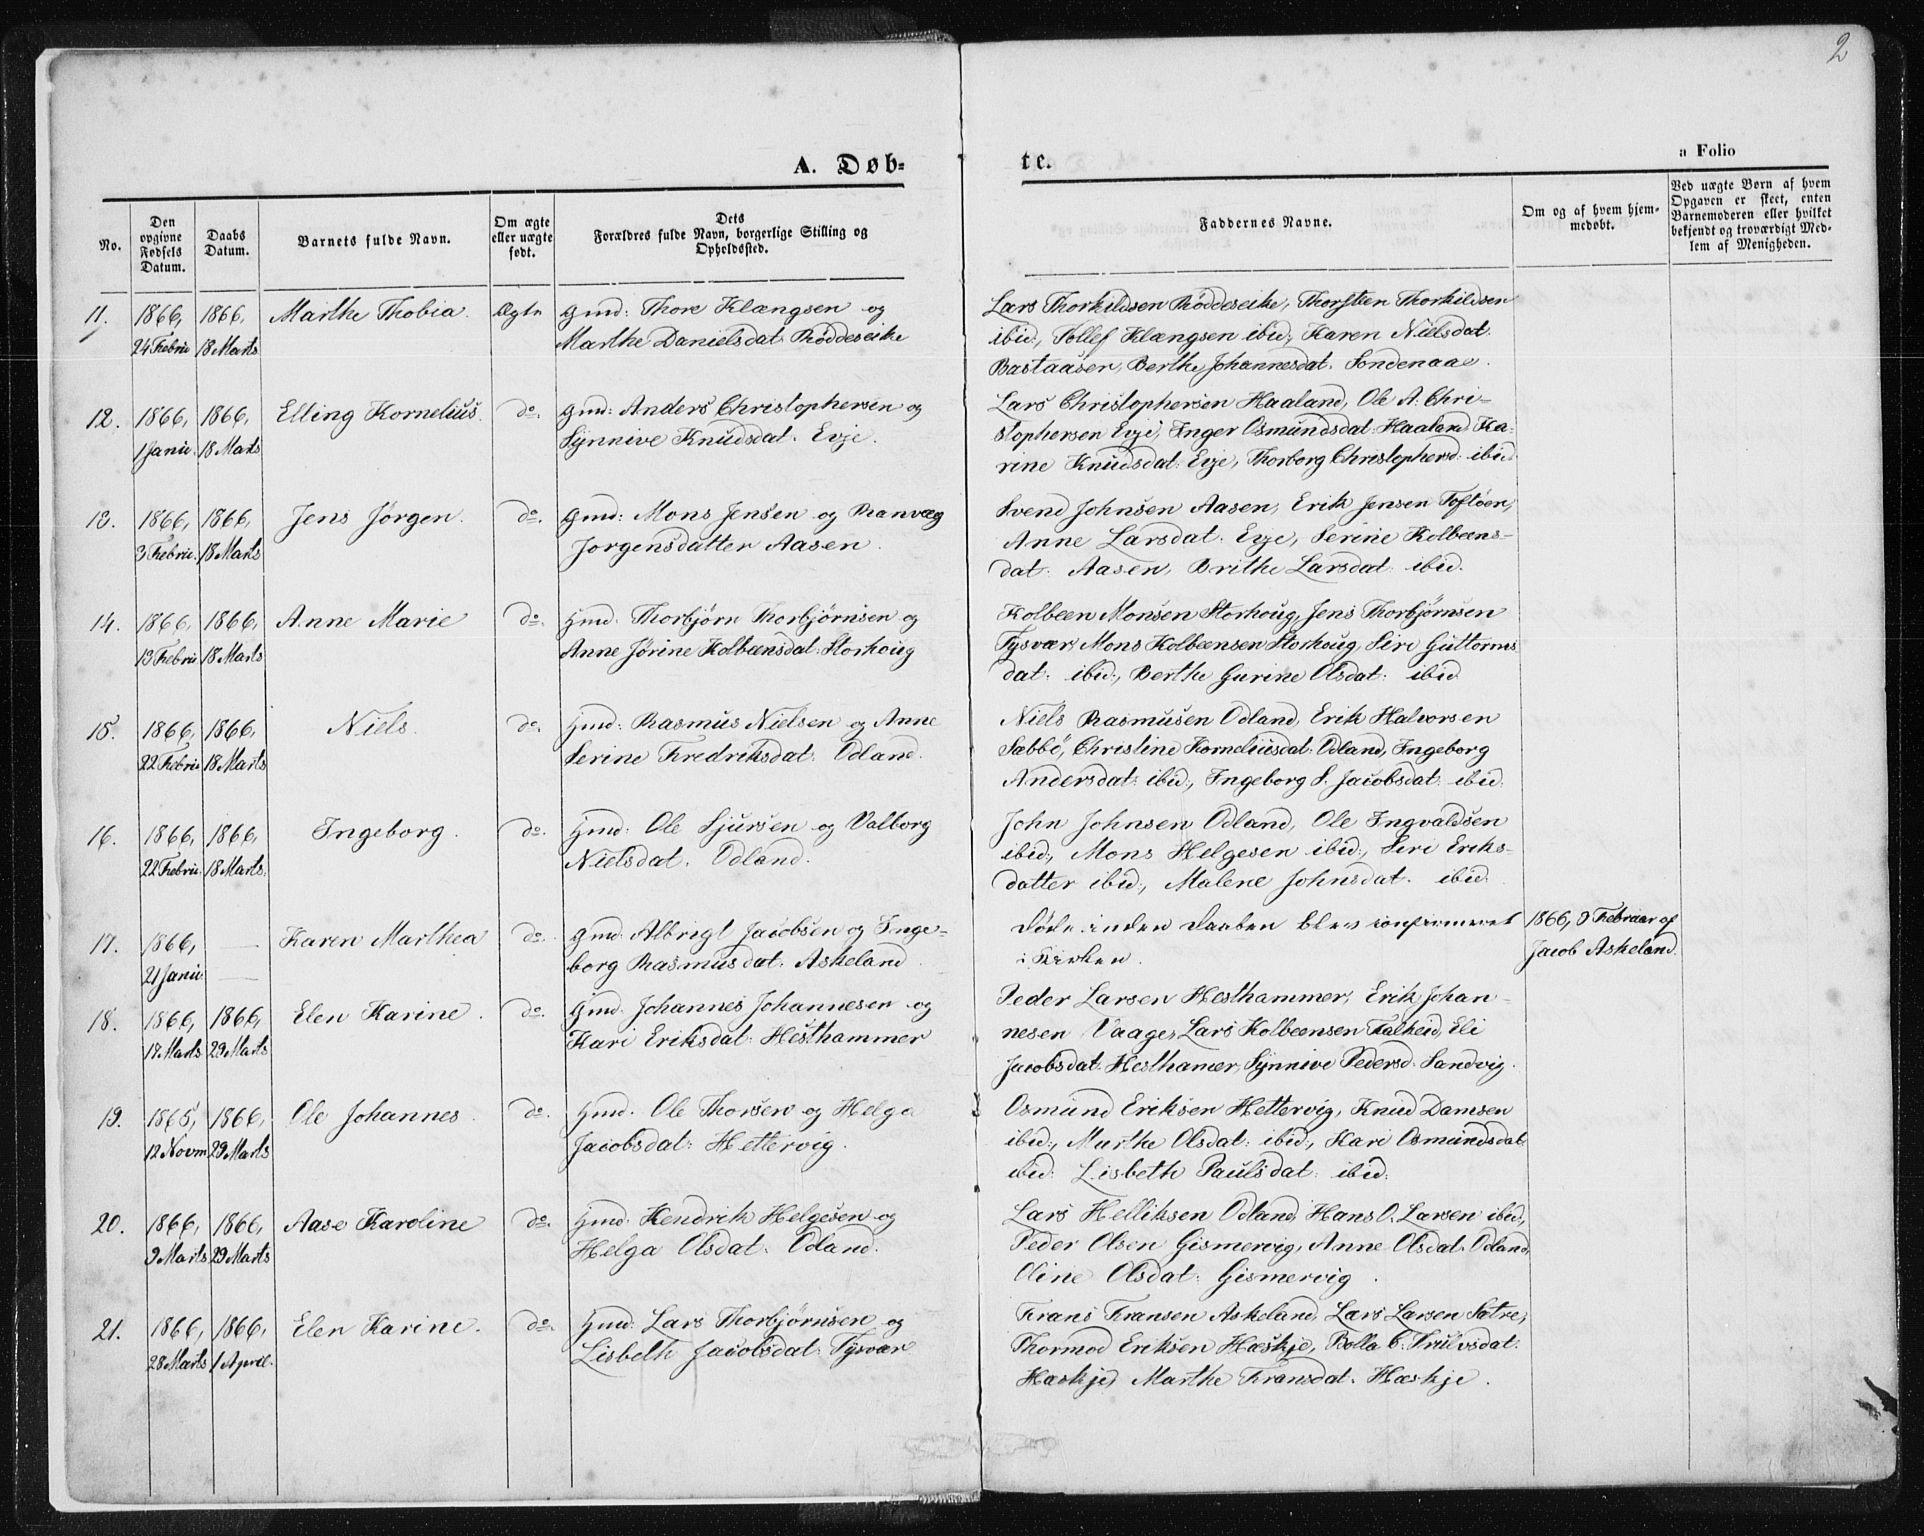 2
A. Døb=
te.
a Folio
No.
Den
opgivne
Fødsels
Datum.
Daabs
Datum.
Barnets fulde Navn.
Om ægte
eller uægte
født.
Dets
Forældres fulde Navn, borgerlige Stilling og
Opholdssted.
Faddernes Navne.
Om og af hvem hjem-
medøbt.
Ved uægte Børn af hvem
Opgaven er skeet, enten
Barnemoderen eller hvilket
bekjendt og troværdigt Med-
lem af Menigheden.
11. 1866, 1866, Marthe Thobia. Ægte Gmd: Thore Klængsen og
24 Febru 18 Marts Marthe Danielsdat: Røddeseike
Lars Thorkildsen Røddeseike, Thorsten Thorkildsen
ibid:, Tollef Klængsen ibid:, Karen Nielsdat:
Bastaasen, Berthe Johannesdat. Søndenaae.
12. 1866, 1866, Elling Kornelius. do. Gmd: Anders Christophersen og
1 Janu. 18 Marts Synnive Knudsdat. Evje.
Lars Christophersen Haaland, Ole A. Chri-
stophersen Evje, Inger Osmundsdat: Haaland Ka-
rine Knudsdat: Evje, Thorborg Christophersd: ibid
13. 1866, 1866, Jens Jørgen. do. Gmd: Mons Jensen og Ranvæg
3 Febru. 18 Marts Jorgensdatter Aasen.
Svend Johnsen Aasen, Erik Jensen Toftøen,
Anne Larsdat: Evje, Serine Kolbeens-
dat. Aasen, Brithe Larsdat: ibid.
14. 1866, 1866, Anne Marie do. Gmd: Thorbjørn Thorbjørnsen og
13 Febru 18 Marts Anne Jørine Kolbeensdat: Storhoug
Kolbeen Monsen Storhoug, Jens Thorbjørnsen
Tysvær, Mons Kolbeensen Storhoug, Siri Guttorms
dat: ibid:, Berthe Gurine Olsdat: ibid
15. 1866, 1866, Niels. do. Gmd: Rasmus Nielsen og Anne
22 Febru 18 Marts Serine Fredriksdat: Odland.
Niels Rasmusen Odland, Erik Halvorsen
Sabbø, Christine Korneliusdat: Odland, Ingeborg
Andersdat: ibid:, Ingeborg S. Jacobsdat: ibid:
16. 1866, 1866, Ingeborg. do. Gmd: Ole Sjursen og Valborg
22 Febru. 18 Marts. Nielsdat. Odland.
John Johnsen Odland, Ole Ingvaldsen
ibid:, Mons Helgesen ibid:, Siri Eriks-
datter ibid:, Malene Johnsdat. ibid:
17. 1866, — Karen Marthea do. Gmd. Albrigt Jacobsen og Inge-
21 Janu. — borg Rasmusdat. Askeland.
Døde inden Daaben blev confirmeret
i Kirken.
1866, 9 Februar af
Jacob Askeland.
18. 1866, 1866, Elen Karine. do. Gmd. Johannes Johannesen og
17 Marts 29 Marts Kari Eriksdat: Hesthammer
Peder Larsen Hesthammer, Erik Johan-
nesen Vaage, Lars Kolbeensen Falkeid, Eli
Jacobsdat: Hesthamer, Synnive Pedersd. Sandvig.
19. 1865, 1866, Ole Johannes. do. Gmd. Ole Thorsen og Helga
12 Novm 29 Marts Jacobsdat: Hettervig.
Osmund Eriksen Hettervig, Knud Damsen
ibid:, Marthe Olsdat: ibid:, Kari Osmundsdat
ibid: Lisbeth Paulsdat: ibid:
20. 1866, 1866, Aase Karoline do. Gmd: Hendrik Helgesen og
9 Marts 29 Marts Helga Olsdat. Odland.
Lars Helliksen Odland, Hans O. Larsen ibid,
Peder Olsen Gismervig, Anne Olsdat. Odland,
Oline Olsdat: Gismervig.
21. 1866, 1866, Elen Karine. do. Gmd. Lars Thorbjørnsen og
28 Marts 1 April. Lisbeth Jacobsdat: Tysvær
Frans Fransen Askeland, Lars Larsen Satre,
Thormod Eriksen Hæskje, Bolla C. Trulvsdat:
Hæskje, Marthe Fransdat. Hæskje.